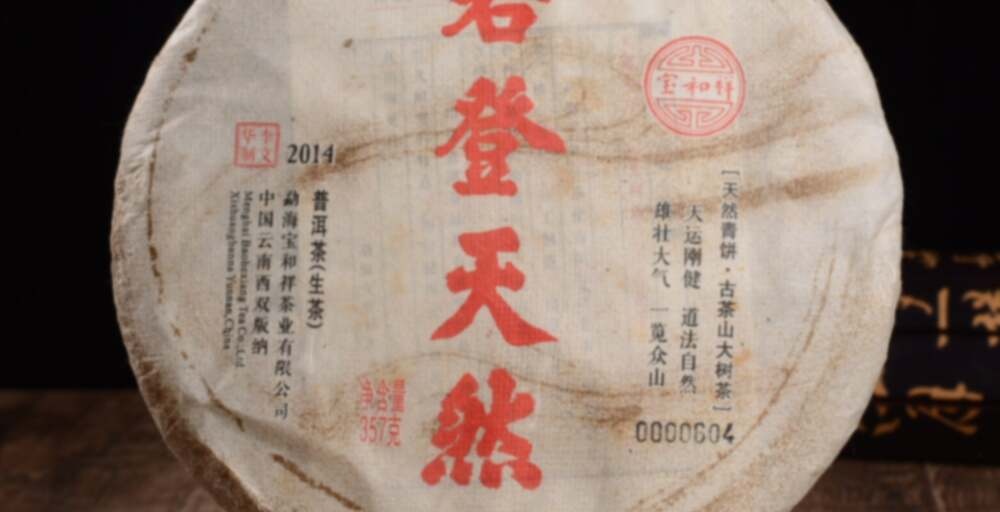 登天然
宝和祥
[天然青饼·古茶山大树茶]
天运刚健 道法自然
雄壮大气 一览众山
0000604
净含量
357克
2014
普洱茶(生茶)
勐海宝和祥茶业有限公司
中国云南西双版纳
Menghai Baohexiang Tea Co.,Ltd
Xishuangbanna Yunnan,China